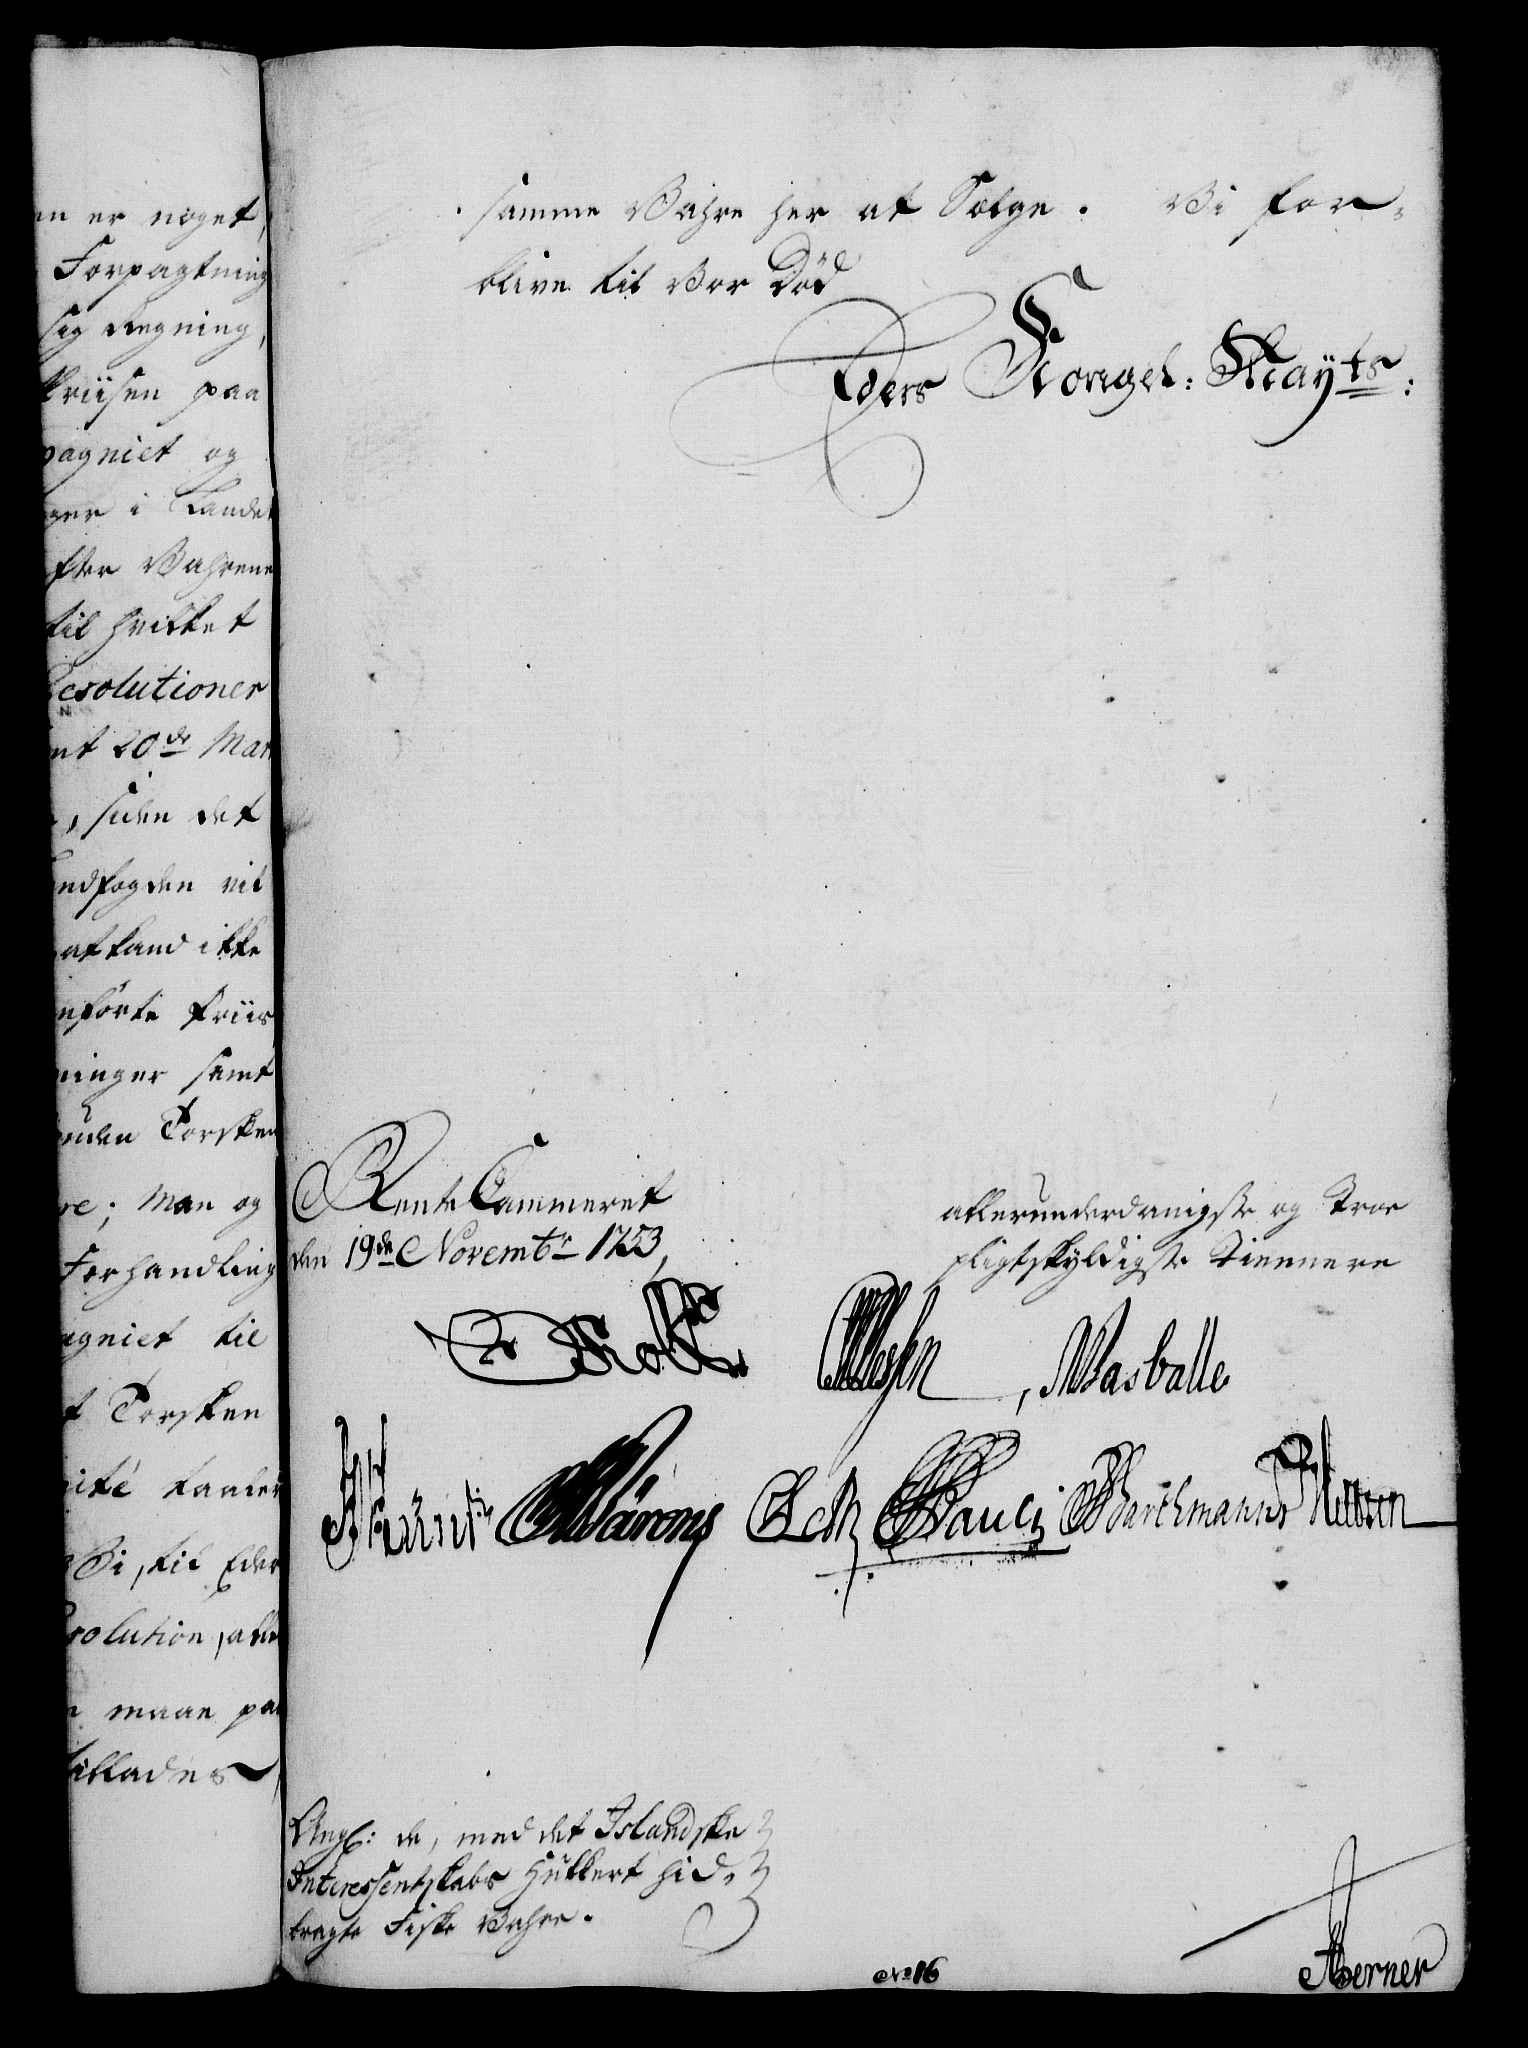 en er noget,
Forpagtning
sig Regning,
Priisen paa
pagniet og
ger i Landet
fter Vahrene
til hvilket
Resolutioner
nt 20de Mar
, siden det
andfogden vil
at kand ikke
nførte Priis
ninger samt
enden Torsken
re; Man og
Forhandling
agniet til
t Torsken
ité taaler
Vi, til Eder
solution, alle
maae paa
tillades,
samme Vahre her at Sælge. Vi for-
blive til Vor Død
Eders Kongel: Mayts:
Rente Cammeret
den 19de Novembr 1753,
allerunderdanigste og Troe
pligtskyldigste Tiennere
Holst
, Wasballe
Pauli Barthmann
Angl: de, med det Islandske
Interessentskabs Hukkert hid-
bragte Fiske Vahre.
No 16
Berner